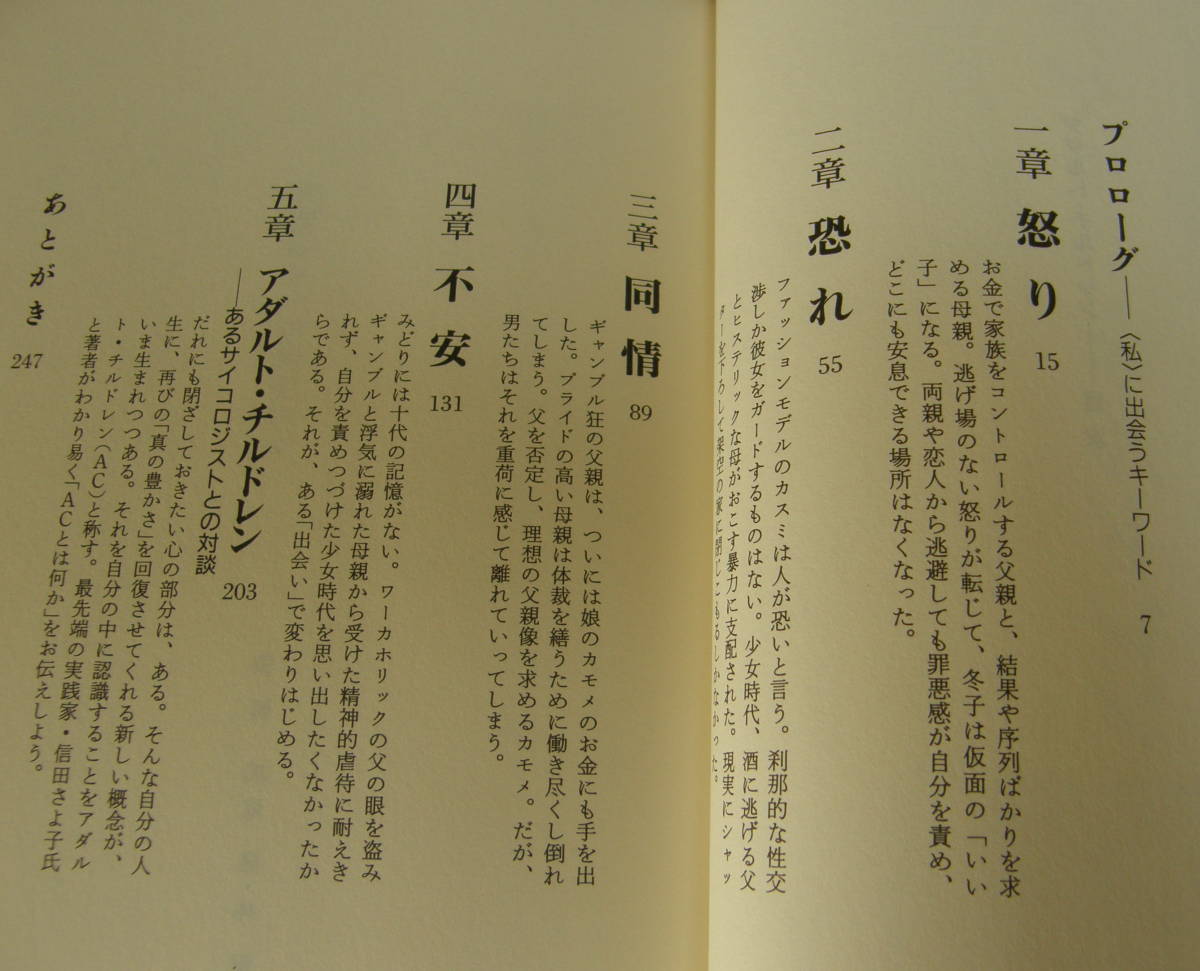 プロローグ――〈私〉に出会うキーワード 7
一章 怒り 15
お金で家族をコントロールする父親と、結果や序列ばかりを求
める母親。逃げ場のない怒りが転じて、冬子は仮面の「いい
子」になる。両親や恋人から逃避しても罪悪感が自分を責め、
どこにも安息できる場所はなくなった。
二章 恐れ 55
ファッションモデルのカスミは人が恐いと言う。刹那的な性交
渉しか彼女をガードするものはない。少女時代、酒に逃げる父
とヒステリックな母がおこす暴力に支配された。現実にシャッ
ターを下ろして架空の家に閉じこもるしかなかった。
三章 同情 89
ギャンブル狂の父親は、ついには娘のカモメのお金にも手を出
した。プライドの高い母親は体裁を繕うために働き尽くし倒れ
てしまう。父を否定し、理想の父親像を求めるカモメ。だが、
男たちはそれを重荷に感じて離れていってしまう。
四章 不安 131
みどりには十代の記憶がない。ワーカホリックの父の眼を盗み
ギャンブルと浮気に溺れた母親から受けた精神的虐待に耐えき
れず、自分を責めつづけた少女時代を思い出したくなかったか
らである。それが、ある「出会い」で変わりはじめる。
五章 アダルト・チルドレン
――あるサイコロジストとの対談 203
だれにも閉ざしておきたい心の部分は、ある。そんな自分の人
生に、再びの「真の豊かさ」を回復させてくれる新しい概念が、
いま生まれつつある。それを自分の中に認識することをアダル
ト・チルドレン(AC)と称す。最先端の実践家・信田さよ子氏
と著者がわかり易く「ACとは何か」をお伝えしよう。
あとがき 247